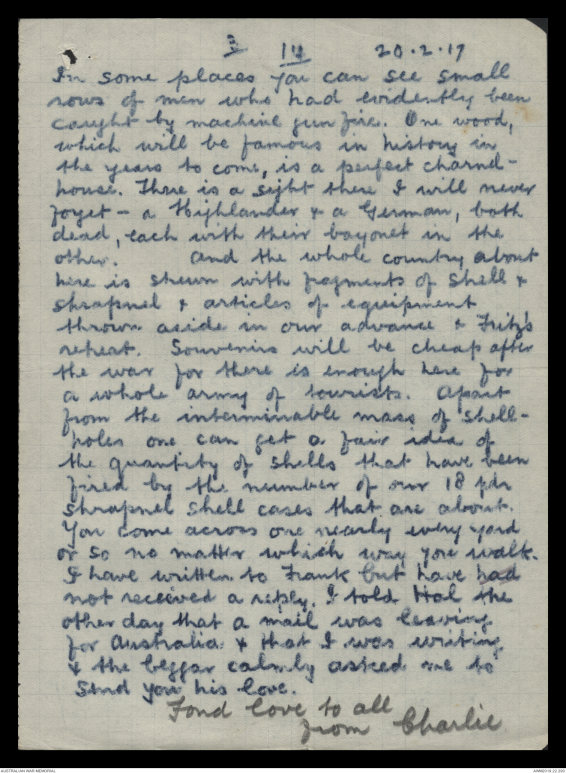 3 14 20.2.17
In some places you can see small
rows of men who had evidently been
caught by machine gun fire. One wood,
which will be famous in history in
the years to come, is a perfect charnel-
house. There is a sight there I will never
forget - a Highlander & a German, both
dead, each with their bayonet in the
other. And the whole country about
here is strewn with fragments of shell &
shrapnel & articles of equipment
thrown aside in our advance & Fritz's
retreat. Souvenirs will be cheap after
the war for there is enough here for
a whole army of tourists. Apart
from the interminable mass of shell-
holes one can get a fair idea of
the quantity of shells that have been
fired by the number of our 18 pdr
shrapnel shell cases that are about.
You come across one nearly every yard
or so no matter which way you walk.
I have written to Frank but have had
not received a reply. I told Hal the
other day that a mail was leaving
for Australia & that I was writing
& the beggar calmly asked me to
send you his love.
Fond love to all
from Charlie
AUSTRALIAN WAR MEMORIAL